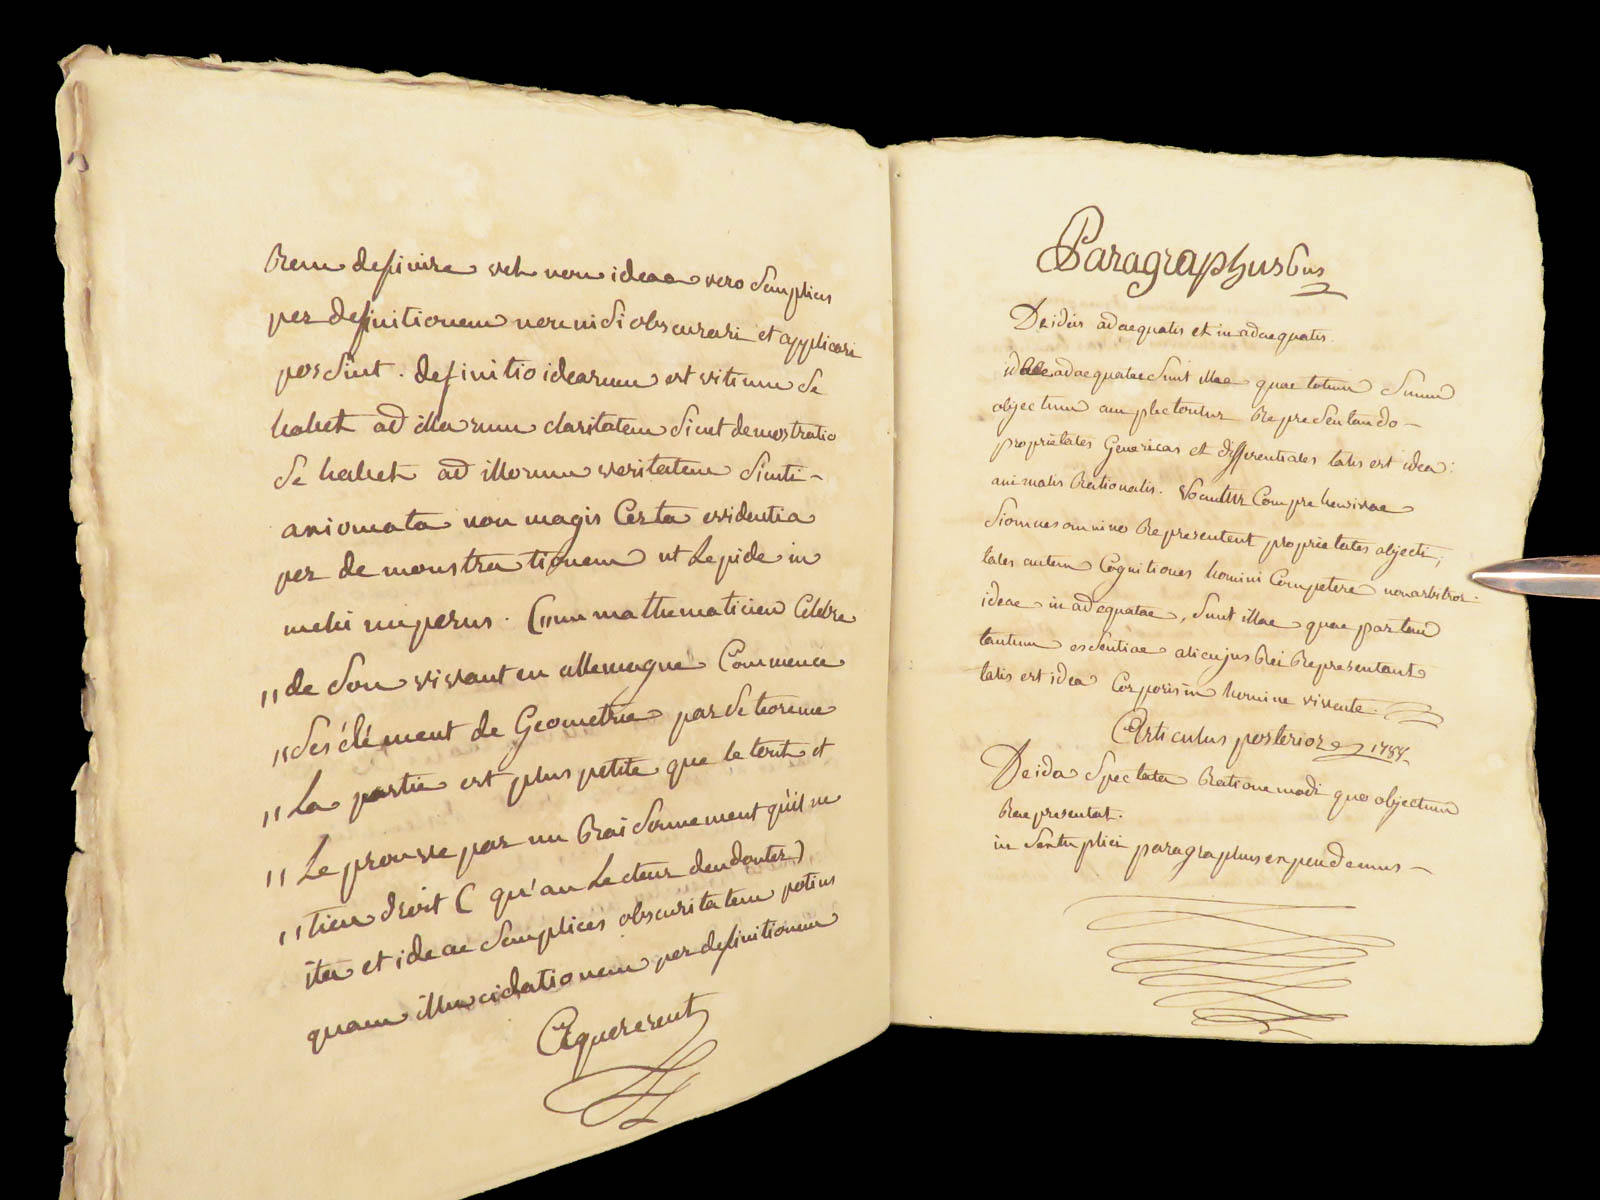 Rem definire vel non ideae vero Simplices
per definitionem non nisi obscurari et applicari
possint. definitio idearum est vitium Se
habet ad illarum claritatem Sicut demostratio
Se habet ad illorum veritatem Sicuti-
axiomata non magis Certa evidentia
per demonstrationem ut Lepide in
(un mathematicien Célebre
"de Son vivant en allemagne Commence
"Ses élément de Geometrie par Se teoreme
"La partie est plus petite que le tout et
"Le prouve par un Raisonnement qu'il ne
"tien droit C qu'au Lecteur d'en douter)
ita et ideae Semplices obscuritatem potius
quam illucidationem per definitionem
Aquererent
Paragraphus 6us
De ideis adaequatis et inadaequatis.
ideae adaequatae Sunt illae quae totum Suum
objectum amplectontur Repraesentando-
proprietates Genericas et differentiales talis est idea:
animalis Rationalis. Vocantur Comprehensivae
Si omnes omnino Representent proprietates objecti;
tales autem Cognitiones homini Competere non arbitror.
ideae inadequatae, Sunt illae quae partem
tantum essentiae alicujus Rei Representant
talis est idea Corporis in homine vivente.
Articulus posterior
De idea Spectata Ratione modi quo objectum
Repraesentat.
in Sentuplici paragraphus expendemus-